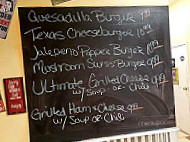 Quesadilla Burger 9.99
Texas Cheeseburger 10.99
Jalapeno Popper Burger
Mushroom Swiss Burger
Ultimate Grilled Cheese
w/ Soup or Chili
Grilled Ham & Cheese 9.99
w/ Soup or Chili